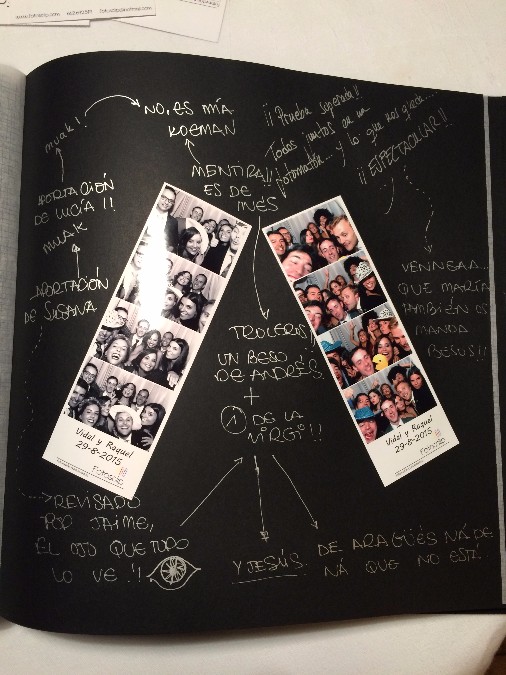 ¡¡Prueba superada!!
Todos juntos en un
fotomatón... y lo que nos queda...
¡¡ESPECTACULAR!!
muak!
NO, ES MÍA
KOEMAN
MENTIRA!!
ES DE
INÉS
APORTACIÓN
DE LUCÍA !!
MUAK
APORTACIÓN
DE SUSANA
VENNGAA...
QUE MARÍA
TAMBIÉN OS
MANDA
BESUS!!
TROLERIS!!
UN BESO
DE ANDRÉS
+
① DE LA
VIRGI!!
Vidal y Raquel
29-8-2015
Vidal y Raquel
29-8-2015
REVISADO
POR JAIME,
EL OJO QUE TODO
LO VE !!
Y JESÚS.
DE ARAGÜÉS NÁ DE
NÁ QUE NO ESTÁ!